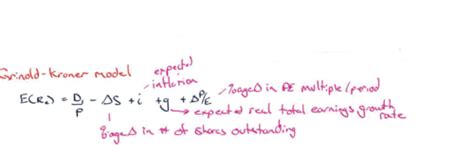 Grinold-Kroner model
expected
inflation
%age Δ in PE multiple/period
E(Re) = D/P - ΔS + i + g + ΔP/E
expected real total earnings growth rate
%age Δ in # of shares outstanding